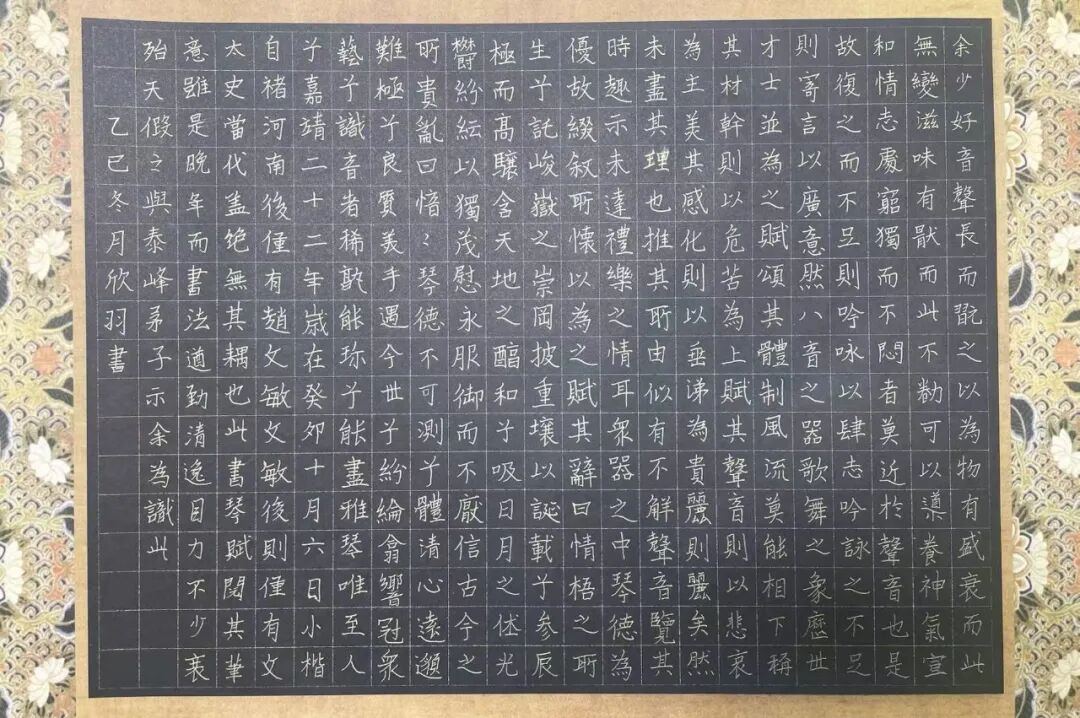 余少好音聲長而翫之以為物有盛衰而此
無變滋味有猒而此不勌可以導養神氣宣
和情志處窮獨而不悶者莫近於聲音也是
故復之而不足則吟咏以肆志吟詠之不足
則寄言以廣意然八音之器歌舞之象歷世
才士並為之賦頌其體制風流莫能相下稱
其材幹則以危苦為上賦其聲音則以悲哀
為主美其感化則以垂涕為貴麗則麗矣然
未盡其理也推其所由似有不解聲音覽其
時趣示未達禮樂之情耳眾器之中琴德為
優故綴叙所懷以為之賦其辭曰情梧之所
生兮託峻嶽之崇岡披重壤以誕載兮參辰
極而高驤含天地之醇和兮吸日月之休光
欝紛紜以獨茂慰永服御而不厭信古今之
所貴亂曰愔〻琴德不可測兮體清心遠邈
難極兮良質美手遇今世兮紛綸翕響冠眾
藝兮識音者稀孰能珍兮能盡雅琴唯至人
兮嘉靖二十二年歲在癸卯十月六日小楷
自褚河南後僅有趙文敏文敏後則僅有文
太史當代盖絕無其耦也此書琴賦閱其筆
意雖是晚年而書法遒勁清逸目力不少衰
殆天假之與泰峰弟子示余為識此
乙巳冬月欣羽書